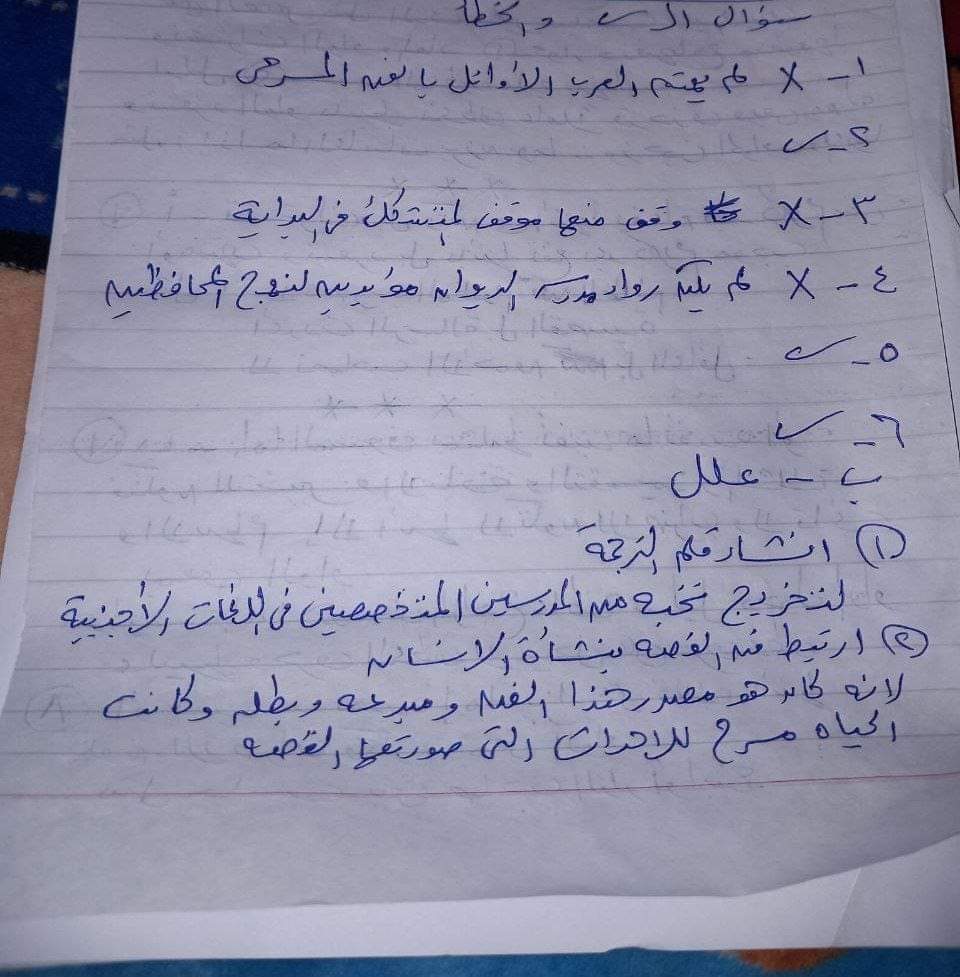 سؤال الـ ✓ والخطأ
١ - X لم يهتم العرب الأوائل بالفن المسرحى
٢ - ✓
٣ - X وقف منها موقف المتشكك فى البداية
٤ - X لم يكن رواد مدرسه الديوان مؤيدين لنهج المحافظين
٥ - ✓
٦ - ✓
ب - علل
(١) انشاء قلم الترجمة
لتخريج نخبه من المدرسين المتخصصين فى اللغات الأجنبية
(٢) ارتبط فن القصه بنشأة الانسان
لانه كان هو مصدر هذا الفن ومبدعه وبطله وكانت
الحياه مسرح للاحداث التى صورتها القصه